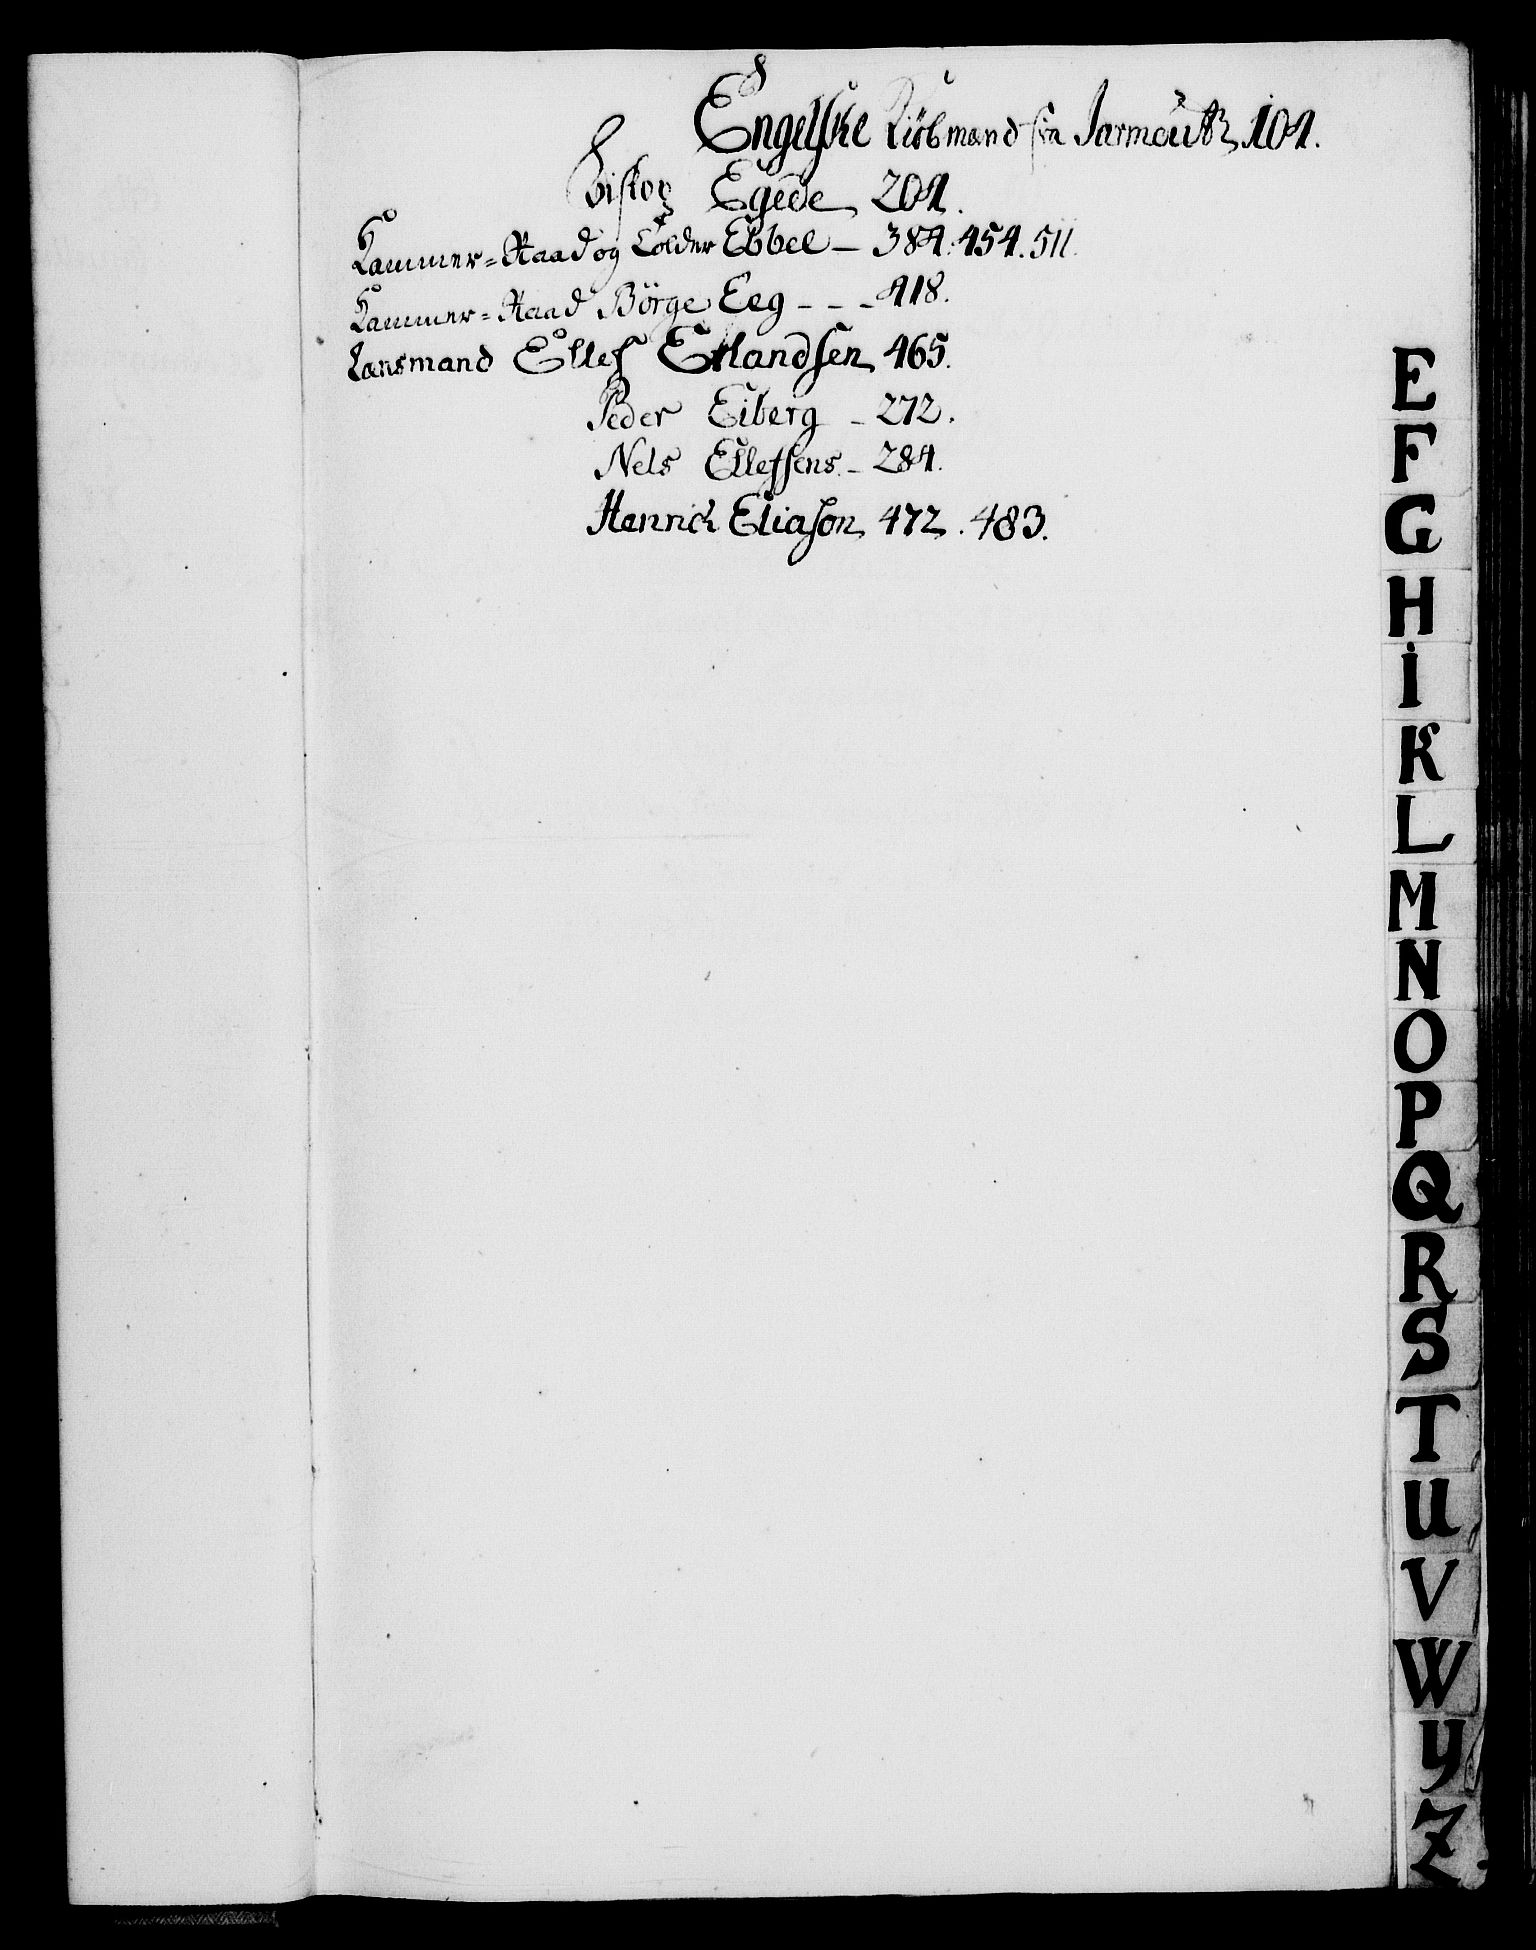 Engelske Kiöbmænd fra Jarmouth 104.
Biskop Egede 204.
Kammer-Raad og Tolder Ebbel — 384. 454. 511.
Kammer-Raad Börge Eeg - - - 418.
Lænsmand Ellef Erlandsen 465.
Peder Eiberg - 272.
Nels Ellefsens - 284.
Henrich Eliason 472. 483.
E
F
G
H
I
K
L
M
N
O
P
Q
R
S
T
U
V
W
Y
Z